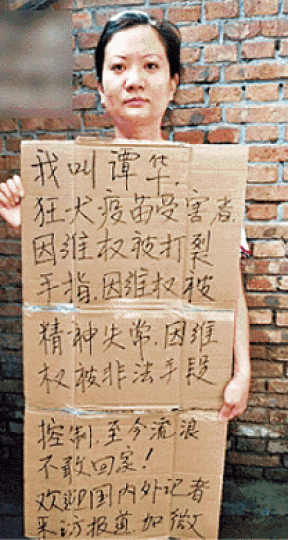 我叫谭华,
狂犬疫苗受害者,
因维权被打裂
手指,因维权被
精神失常,因维
权被非法手段
控制,至今流浪
不敢回家!
欢迎国内外记者
采访报道加微